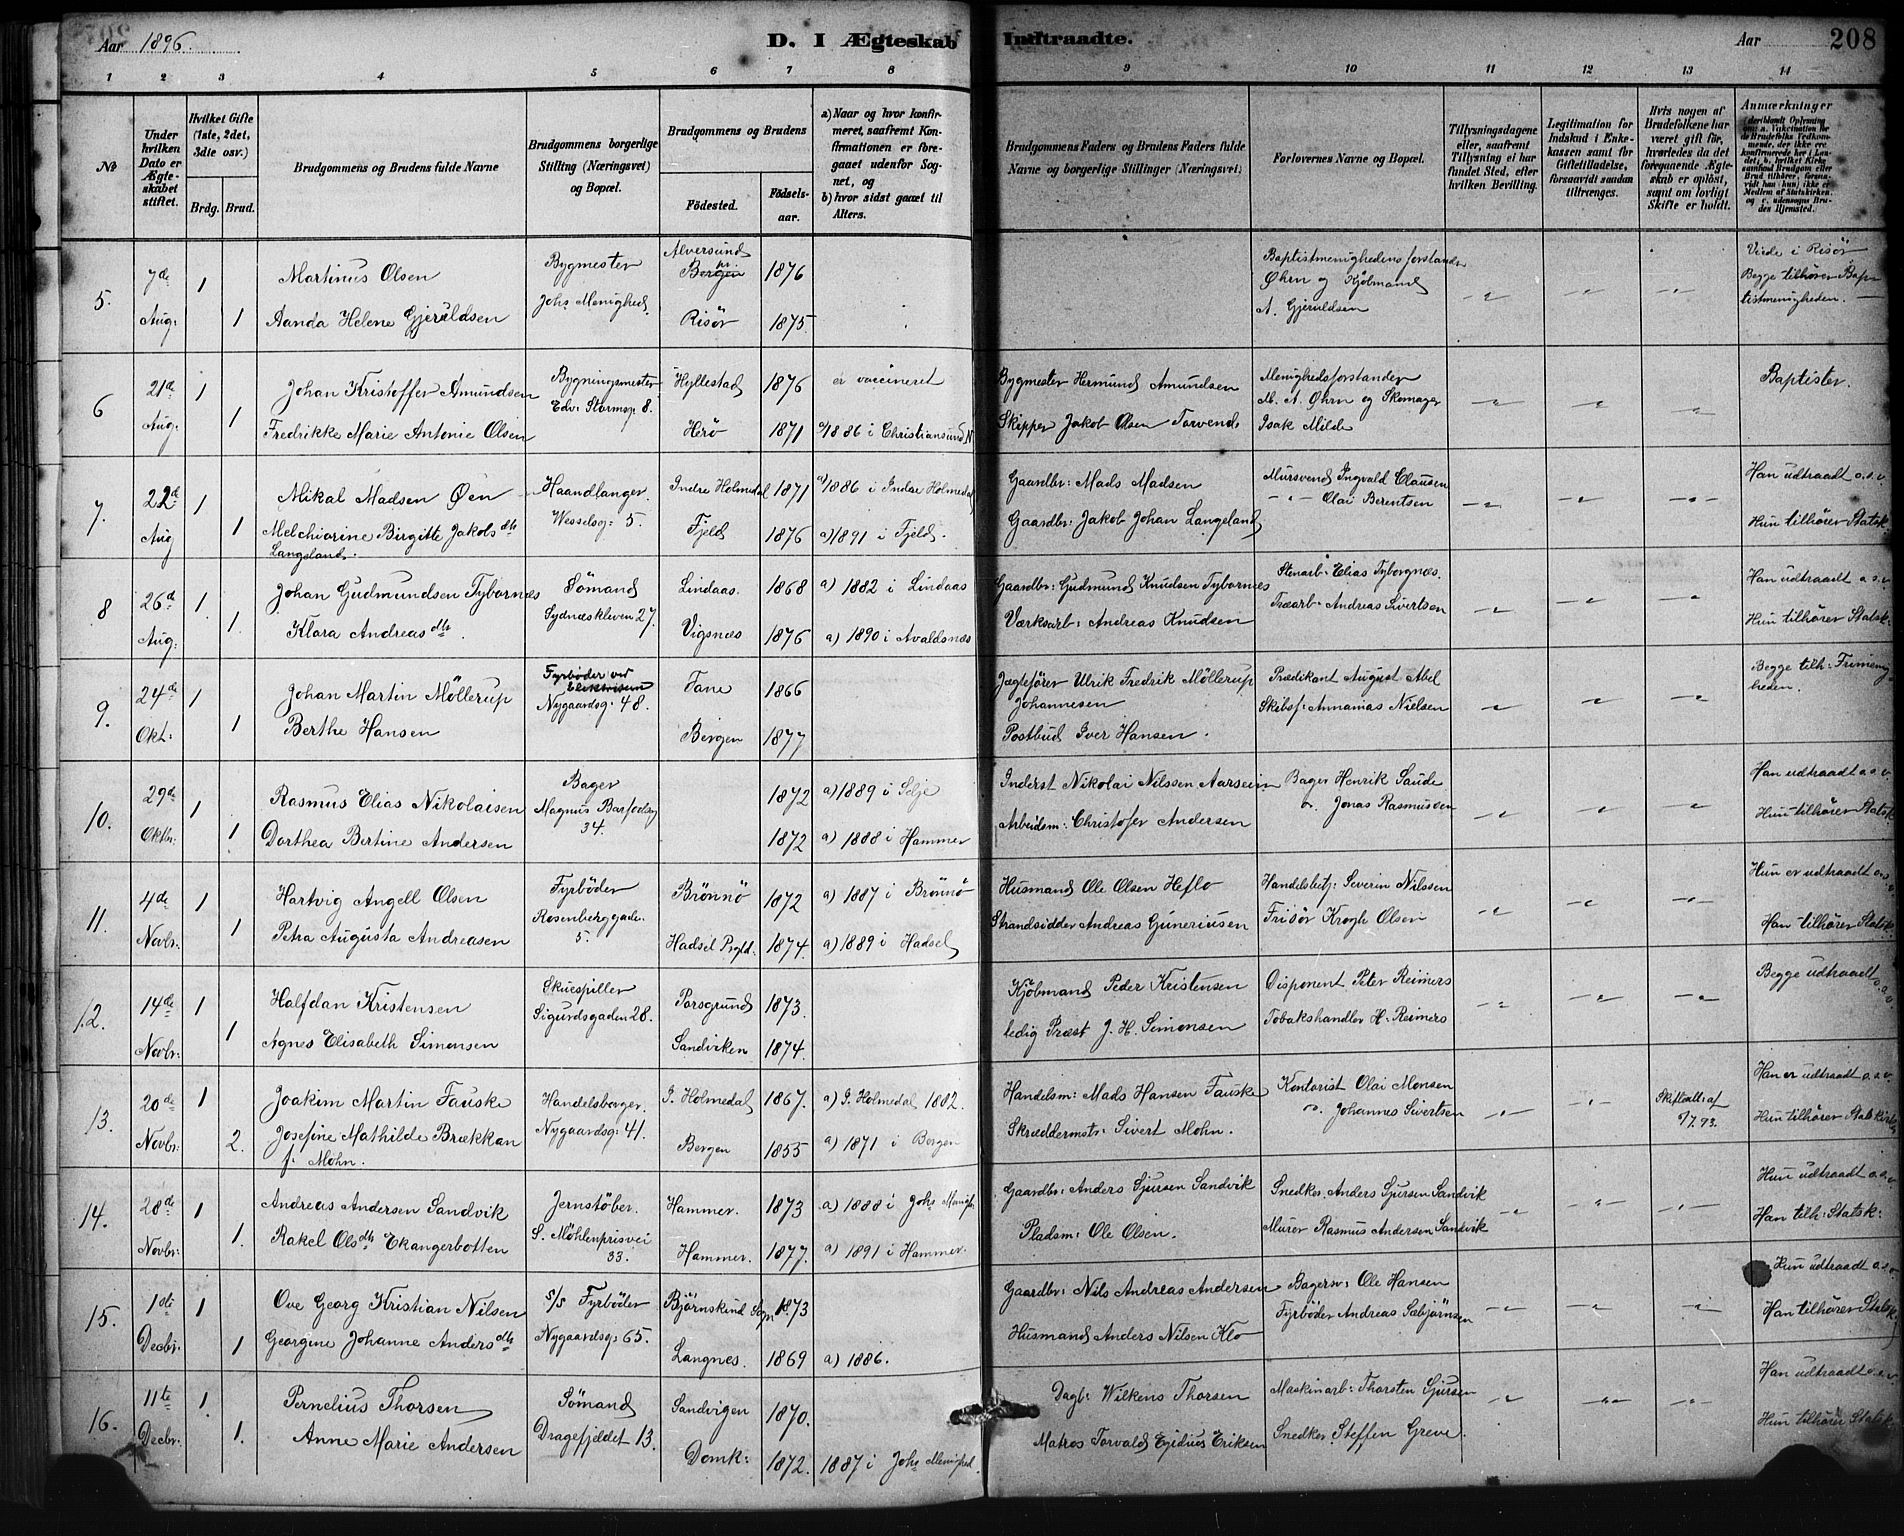 Aar 1896. D. I Ægteskab Indtraadte. Aar 208
1 2 3 4 5 6 7 8 9 10 11 12 13 14
№
Under hvilken Dato er Ægteskabet stiftet.
Hvilket Gifte (1ste, 2det, 3die osv.)
Brdg. Brud.
Brudgommens og Brudens fulde Navne
Brudgommens borgerlige Stilling (Næringsvei) og Bopæl.
Brudgommens og Brudens
Fødested. Fødselsaar.
a) Naar og hvor konfirmeret, saafremt Konfirmationen er foregaaet udenfor Sognet, og
b) hvor sidst gaaet til Alters.
Brudgommens Faders og Brudens Faders fulde Navne og borgerlige Stillinger (Næringsvei)
Forlovernes Navne og Bopæl.
Tillysningsdagene eller, saafremt Tillysning ei har fundet Sted, efter hvilken Bevilling.
Legitimation for Indskud i Enkekassen samt for Giftetilladelse, forsaavidt saadan tiltrænges.
Hvis nogen af Brudefolkene har været gift før, hvorledes da det foregaaende Ægteskab er opløst, samt om lovligt Skifte er holdt.
Anmærkninger
5. 7de Aug: 1 1
Martinus Olsen
Aanda Helene Gjeruldsen
Bygmester
Johs Menighed.
Alversund
pr. Bergen 1876
Risör 1875
Baptistmenighedens forstander
Øhrn og Kjöbmand
A. Gjeruldsen
Viede i Risör
Begge tilhører Bap
tistmenigheden.
6 21de Aug: 1 1
Johan Kristoffer Amundsen
Fredrikke Marie Antonie Olsen
Bygningsmester
Edv: Stormsg: 8.
Hyllestad 1876 er vaccineret
Herö 1871 a/1886 i Christiansund N
Bygmester Hermund Amundsen
Skipper Jakob Olsen Torvend.
Menighedsforstander
M. A. Øhrn og Skomager
Isak Milde
Baptister.
7. 22de Aug 1 1
Mikal Madsen Øen
Melchiorine Birgitte Jakobsdtr
Langeland.
Haandlanger.
Wesselsg: 5.
Indre Holmedal 1871 a/1886 i Indre Holmedal
Fjeld 1876 a) 1891 i Fjeld.
Gaardbr: Mads Madsen
Gaardbr: Jakob Johan Langeland
Mursvend Ingvald Clausen
Olai Berentsen
Han udtraadt a.s.v.
Hun tilhører Statsk.
8 26de Aug: 1 1
Johan Gudmundsen Tybornes
Klara Andreasdtr.
Sömand
Sydneskleven 27.
Lindaas. 1868 a) 1882 i Lindaas
Vigsnes 1876 a) 1890 i Avaldsnes
Gaardbr: Gudmund Knudsen Tybornes
Værksarb: Andreas Knudsen
Stenarb: Elias Tyborgnes.
Træarb: Andreas Sivertsen
Han udtraadt a.s.v.
Hun tilhører Statsk.
9. 24de Okt: 1 1
Johan Martin Möllerup
Berthe Hansen
Fyrböder ved
Nygaardsg: 48.
Tane 1866
Bergen 1877
Jægtefører Ulrik Fredrik Möllerup
Johannesen
Postbud Iver Hansen.
Prædikant August Abel
Skibsf: Annanias Nielsen
Begge tilh: Frimenig
heden.
10. 29de Oktbr: 1 1
Rasmus Elias Nikolaisen
Dorthea Bertine Andersen
Bager
Magnus Barfodsg
34.
1872 a) 1889 i Selje
1872 a) 1888 i Hammer
Inderst Nikolai Nilssen Aarseim
Arbeidsm: Christofer Andersen
Bager Henrik Saude
Jonas Rasmussen
Han udtraadt a.s.v.
Hun tilhører Statsk.
11. 4de Novbr: 1 1
Hartvig Angell Olsen
Petra Augusta Andreasen
Fyrböder
Rosenberggade.
5.
Brönnö 1872 a) 1887 i Brönnö
Hadsel Prgld. 1874. a) 1889 i Hadsel
Husmand Ole Olsen Heflo
Strandsidder Andreas Guneriusen
Handelsbetj: Severin Nilssen
Frisör Krogh Olsen
Hun er udtraadt a.s.v.
Han tilhører Statsk.
12. 14de Novbr: 1 1
Halfdan Kristensen
Agnes Elisabeth Simonsen
Skuespiller
Sigurdsgaden 28.
Porsgrund 1873.
Sandviken 1874.
Kjöbmand Peder Kristensen
ledig Præst J. H. Simonsen
Disponent Peter Reimers
Tobakshandler H. Reimers
Begge udtraadt a.s.v.
13. 20de Novbr: 1 2.
Joakim Martin Fauske
Josefine Mathilde Brækkan
f. Mohn.
Handelsborger.
Nygaardsg: 41.
I. Holmedal 1867. a) I. Holmedal 1882.
Bergen 1855 a) 1871 i Bergen
Handelsm: Mads Hansen Fauske
Skræddermstr: Sivert Mohn.
Kontorist Olai Monsen
Johannes Sivertsen
Skifteatt: af
7/7.93.
Han er udtraadt a.s.v.
Hun tilhører Statskirken
14. 28de Novbr: 1 1.
Andreas Andersen Sandvik
Rakel Olsdtr Ekangerbotten
Jernstöber.
S. Möhlenprisvei
33.
Hammer. 1873 a) 1888 i Johs Menigh.
Hammer. 1877. a) 1891 i Hammer.
Gaardbr: Anders Sjursen Sandvik
Pladsm: Ole Olsen.
Snedker Anders Sjursen Sandvik
Murer Rasmus Andersen Sandvik
Hun udtraadt a.s.v.
Han tilh: Statsk:
15. 1ste Decbr: 1 1
Ove Georg Kristian Nilsen
Georgine Johanne Andersdtr
S/S Fyrböder
Nygaardsg: 65.
Björnskind Sogn 1873
Langnes. 1869 a) 1886.
Gaardbr: Nils Andreas Andersen
Husmand Anders Nilsen Klo
Bagersv: Ole Hansen
Fyrböder Andreas Sæbjörnsen
Hun udtraadt a.s.v
Han tilhører Statsk.
16. 11te Decbr: 1 1.
Pernelius Thorsen
Anne Marie Andersen
Sömand
Dragefjeldet 13.
Sandvigen 1870.
Domk: 1872. 1887 i Johs Menighed.
Dagb: Wilkens Thorsen
Matros Torvald Egidius Eriksen
Maskinarb: Thorsten Sjursen
Snedker Steffen Greve.
Han udtraadt a.s.v.
Hun tilhører Statsk.